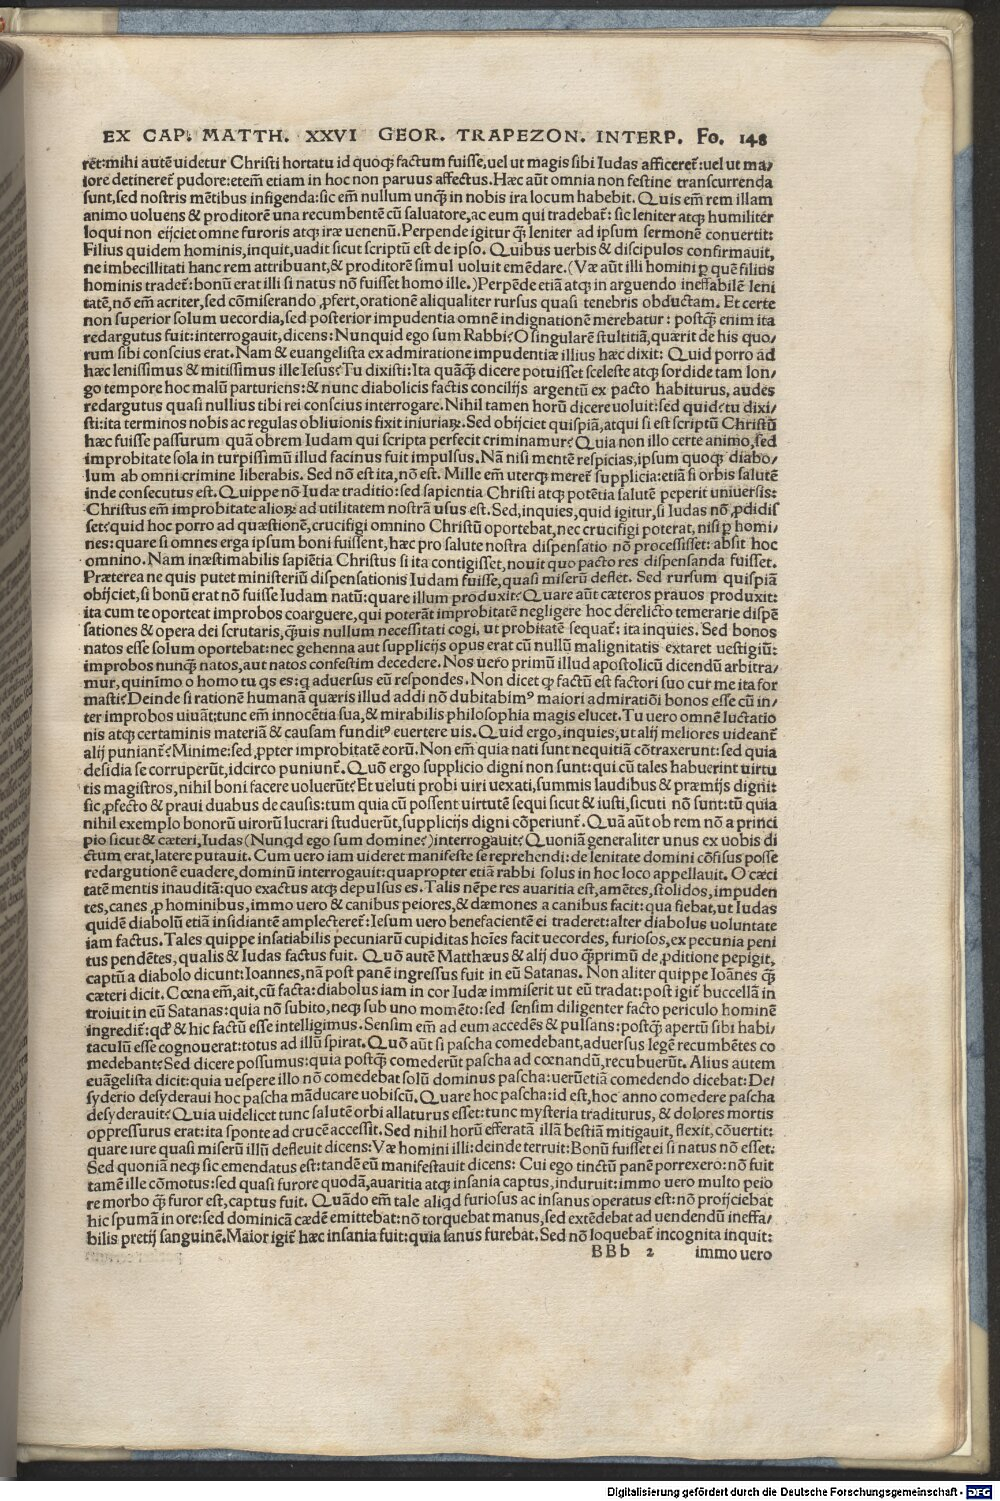 EX CAP. MATTH. XXVI GEOR. TRAPEZON. INTERP. Fo. 148
rēt:mihi autē uidetur Christi hortatu id quoq; factum fuisse,uel ut magis sibi Iudas afficeret̄:uel ut ma/
iore detineret̄ pudore:etem̄ etiam in hoc non paruus affectus.Hæc aūt omnia non festine transcurrenda
sunt,sed nostris mētibus infigenda:sic em̄ nullum unq̄ in nobis ira locum habebit. Quis em̄ rem illam
animo uoluens & proditorē una recumbentē cū saluatore,ac eum qui tradebat̄: sic leniter atq; humiliter
loqui non eijciet omne furoris atq; iræ uenenū.Perpende igitur q̄ leniter ad ipsum sermonē conuertit:
Filius quidem hominis,inquit,uadit sicut scriptū est de ipso. Quibus uerbis & discipulos confirmauit,
ne imbecillitati hanc rem attribuant,& proditorē simul uoluit emēdare.(Væ aūt illi homini ꝑ quē filius
hominis tradet̄:bonū erat illi si natus nō fuisset homo ille.)Perpēde etiā atq; in arguendo ineffabilē leni
tatē,nō em̄ acriter,sed cōmiserando ꝓfert,orationē aliqualiter rursus quasi tenebris obductam. Et certe
non superior solum uecordia,sed posterior impudentia omnē indignationē merebatur: postq̄ enim ita
redargutus fuit:interrogauit,dicens:Nunquid ego sum Rabbi?O singularē stultitiā,quærit de his quo/
rum sibi conscius erat. Nam & euangelista ex admiratione impudentiæ illius hæc dixit: Quid porro ad
hæc lenissimus & mitissimus ille Iesus?Tu dixisti:Ita quāq̄ dicere potuisset sceleste atq; sordide tam lon/
go tempore hoc malū parturiens:& nunc diabolicis factis concilijs argentū ex pacto habiturus, audes
redargutus quasi nullius tibi rei conscius interrogare.Nihil tamen horū dicere uoluit:sed quid?tu dixi/
sti:ita terminos nobis ac regulas obliuionis fixit iniuriaꝝ.Sed obijciet quispiā,atqui si est scriptū Christū
hæc fuisse passurum quā obrem Iudam qui scripta perfecit criminamur?Quia non illo certe animo,sed
improbitate sola in turpissimū illud facinus fuit impulsus. Nā nisi mentē respicias,ipsum quoq; diabo/
lum ab omni crimine liberabis. Sed nō est ita,nō est. Mille em̄ uterq; meret̄ supplicia:etiā si orbis salutē
inde consecutus est.Quippe nō Iudæ traditio:sed sapientia Christi atq; potētia salutē peperit uniuersis:
Christus em̄ improbitate alioꝝ ad utilitatem nostrā usus est.Sed,inquies,quid igitur,si Iudas nō ꝓdidis
set?quid hoc porro ad quæstionē,crucifigi omnino Christū oportebat,nec crucifigi poterat,nisi ꝑ homi/
nes:quare si omnes erga ipsum boni fuissent,hæc pro salute nostra dispensatio nō processisset: absit hoc
omnino. Nam inæstimabilis sapiētia Christus si ita contigisset,nouit quo pacto res dispensanda fuisset.
Præterea ne quis putet ministeriū dispensationis Iudam fuisse,quasi miserū deflet. Sed rursum quispiā
obijciet,si bonū erat nō fuisse Iudam natū:quare illum produxit?Quare aūt cæteros prauos produxit:
ita cum te oporteat improbos coarguere,qui poterāt improbitatē negligere hoc derelicto temerarie dispē
sationes & opera dei scrutaris,q̄uis nullum necessitati cogi, ut probitatē sequat̄: ita inquies. Sed bonos
natos esse solum oportebat:nec gehenna aut supplicijs opus erat cū nullū malignitatis extaret uestigiū:
improbos nunq̄ natos,aut natos confestim decedere. Nos uero primū illud apostolicū dicendū arbitra/
mur,quinimo o homo tu qs es:q aduersus eū respondes. Non dicet qꝫ factū est factori suo cur me ita for
masti?Deinde si rationē humanā quæris illud addi nō dubitabimꝰ maiori admiratiōi bonos esse cū in/
ter improbos uiuāt:tunc em̄ innocētia sua,& mirabilis philosophia magis elucet.Tu uero omnē luctatio
nis atq; certaminis materiā & causam funditꝰ euertere uis. Quid ergo,inquies,ut alij meliores uideant̄
alij puniant̄?Minime:sed ꝓpter improbitatē eorū. Non em̄ quia nati sunt nequitiā cōtraxerunt:sed quia
desidia se corruperūt,idcirco puniunt̄. Quō ergo supplicio digni non sunt:qui cū tales habuerint uirtu
tis magistros,nihil boni facere uoluerūt?Et ueluti probi uiri uexati,summis laudibus & præmijs digni:
sic ꝓfecto & praui duabus de causis:tum quia cū possent uirtutē sequi sicut & iusti,sicuti nō sunt:tū quia
nihil exemplo bonorū uirorū lucrari studuerūt,supplicijs digni cōperiunt̄. Quā aūt ob rem nō a princi
pio sicut & cæteri,Iudas (Nunqd ego sum domine?)interrogauit?Quoniā generaliter unus ex uobis di
ctum erat,latere putauit. Cum uero iam uideret manifeste se reprehendi: de lenitate domini cōfisus posse
redargutionē euadere,dominū interrogauit:quapropter etiā rabbi solus in hoc loco appellauit. O cæci
tatē mentis inauditā:quo exactus atq; depulsus es.Talis nēpe res auaritia est,amētes,stolidos, impuden
tes,canes ꝓ hominibus, immo uero & canibus peiores,& dæmones a canibus facit: qua fiebat,ut Iudas
quidē diabolū etiā insidiantē amplecteret̄:Iesum uero benefacientē ei traderet:alter diabolus uoluntate
iam factus.Tales quippe insatiabilis pecuniarū cupiditas hoīes facit uecordes, furiosos,ex pecunia peni
tus pendētes, qualis & Iudas factus fuit. Quō autē Matthæus & alij duo q̄primū de ꝓditione pepigit,
captū a diabolo dicunt:Ioannes,nā post panē ingressus fuit in eū Satanas. Non aliter quippe Ioānes q̄
cæteri dicit. Cœna em̄,ait,cū facta:diabolus iam in cor Iudæ immiserit ut eū tradat:post igit̄ buccellā in
troiuit in eū Satanas:quia nō subito,neq; sub uno momēto:sed sensim diligenter facto periculo hominē
ingredit̄:qđ & hic factū esse intelligimus. Sensim em̄ ad eum accedēs & pulsans:postq̄ apertū sibi habi/
taculū esse cognouerat:totus ad illū spirat. Quō aūt si pascha comedebant,aduersus legē recumbētes co
medebant?Sed dicere possumus:quia postq̄ comederūt pascha ad cœnandū,recubuerūt. Alius autem
euāgelista dicit:quia uespere illo nō comedebat solū dominus pascha:uerūetiā comedendo dicebat: De/
syderio desyderaui hoc pascha māducare uobiscū. Quare hoc pascha:id est,hoc anno comedere pascha
desyderauit?Quia uidelicet tunc salutē orbi allaturus esset:tunc mysteria traditurus, & dolores mortis
oppressurus erat:ita sponte ad crucē accessit. Sed nihil horū efferatā illā bestiā mitigauit, flexit, cōuertit:
quare iure quasi miserū illū defleuit dicens: Væ homini illi: deinde terruit:Bonū fuisset ei si natus nō esset:
Sed quoniā neq; sic emendatus est:tandē eū manifestauit dicens: Cui ego tinctū panē porrexero:nō fuit
tamē ille cōmotus:sed quasi furore quodā,auaritia atq; insania captus, induruit: immo uero multo peio
re morbo q̄ furor est, captus fuit. Quādo em̄ tale aliqd furiosus ac insanus operatus est: nō proijciebat
hic spumā in ore:sed dominicā cædē emittebat:nō torquebat manus,sed extēdebat ad uendendū ineffa/
bilis pretij sanguinē.Maior igit̄ hæc insania fuit: quia sanus furebat. Sed nō loquebat̄ incognita inquit:
BBb 2 immo uero
Digitalisierung gefördert durch die Deutsche Forschungsgemeinschaft - DFG